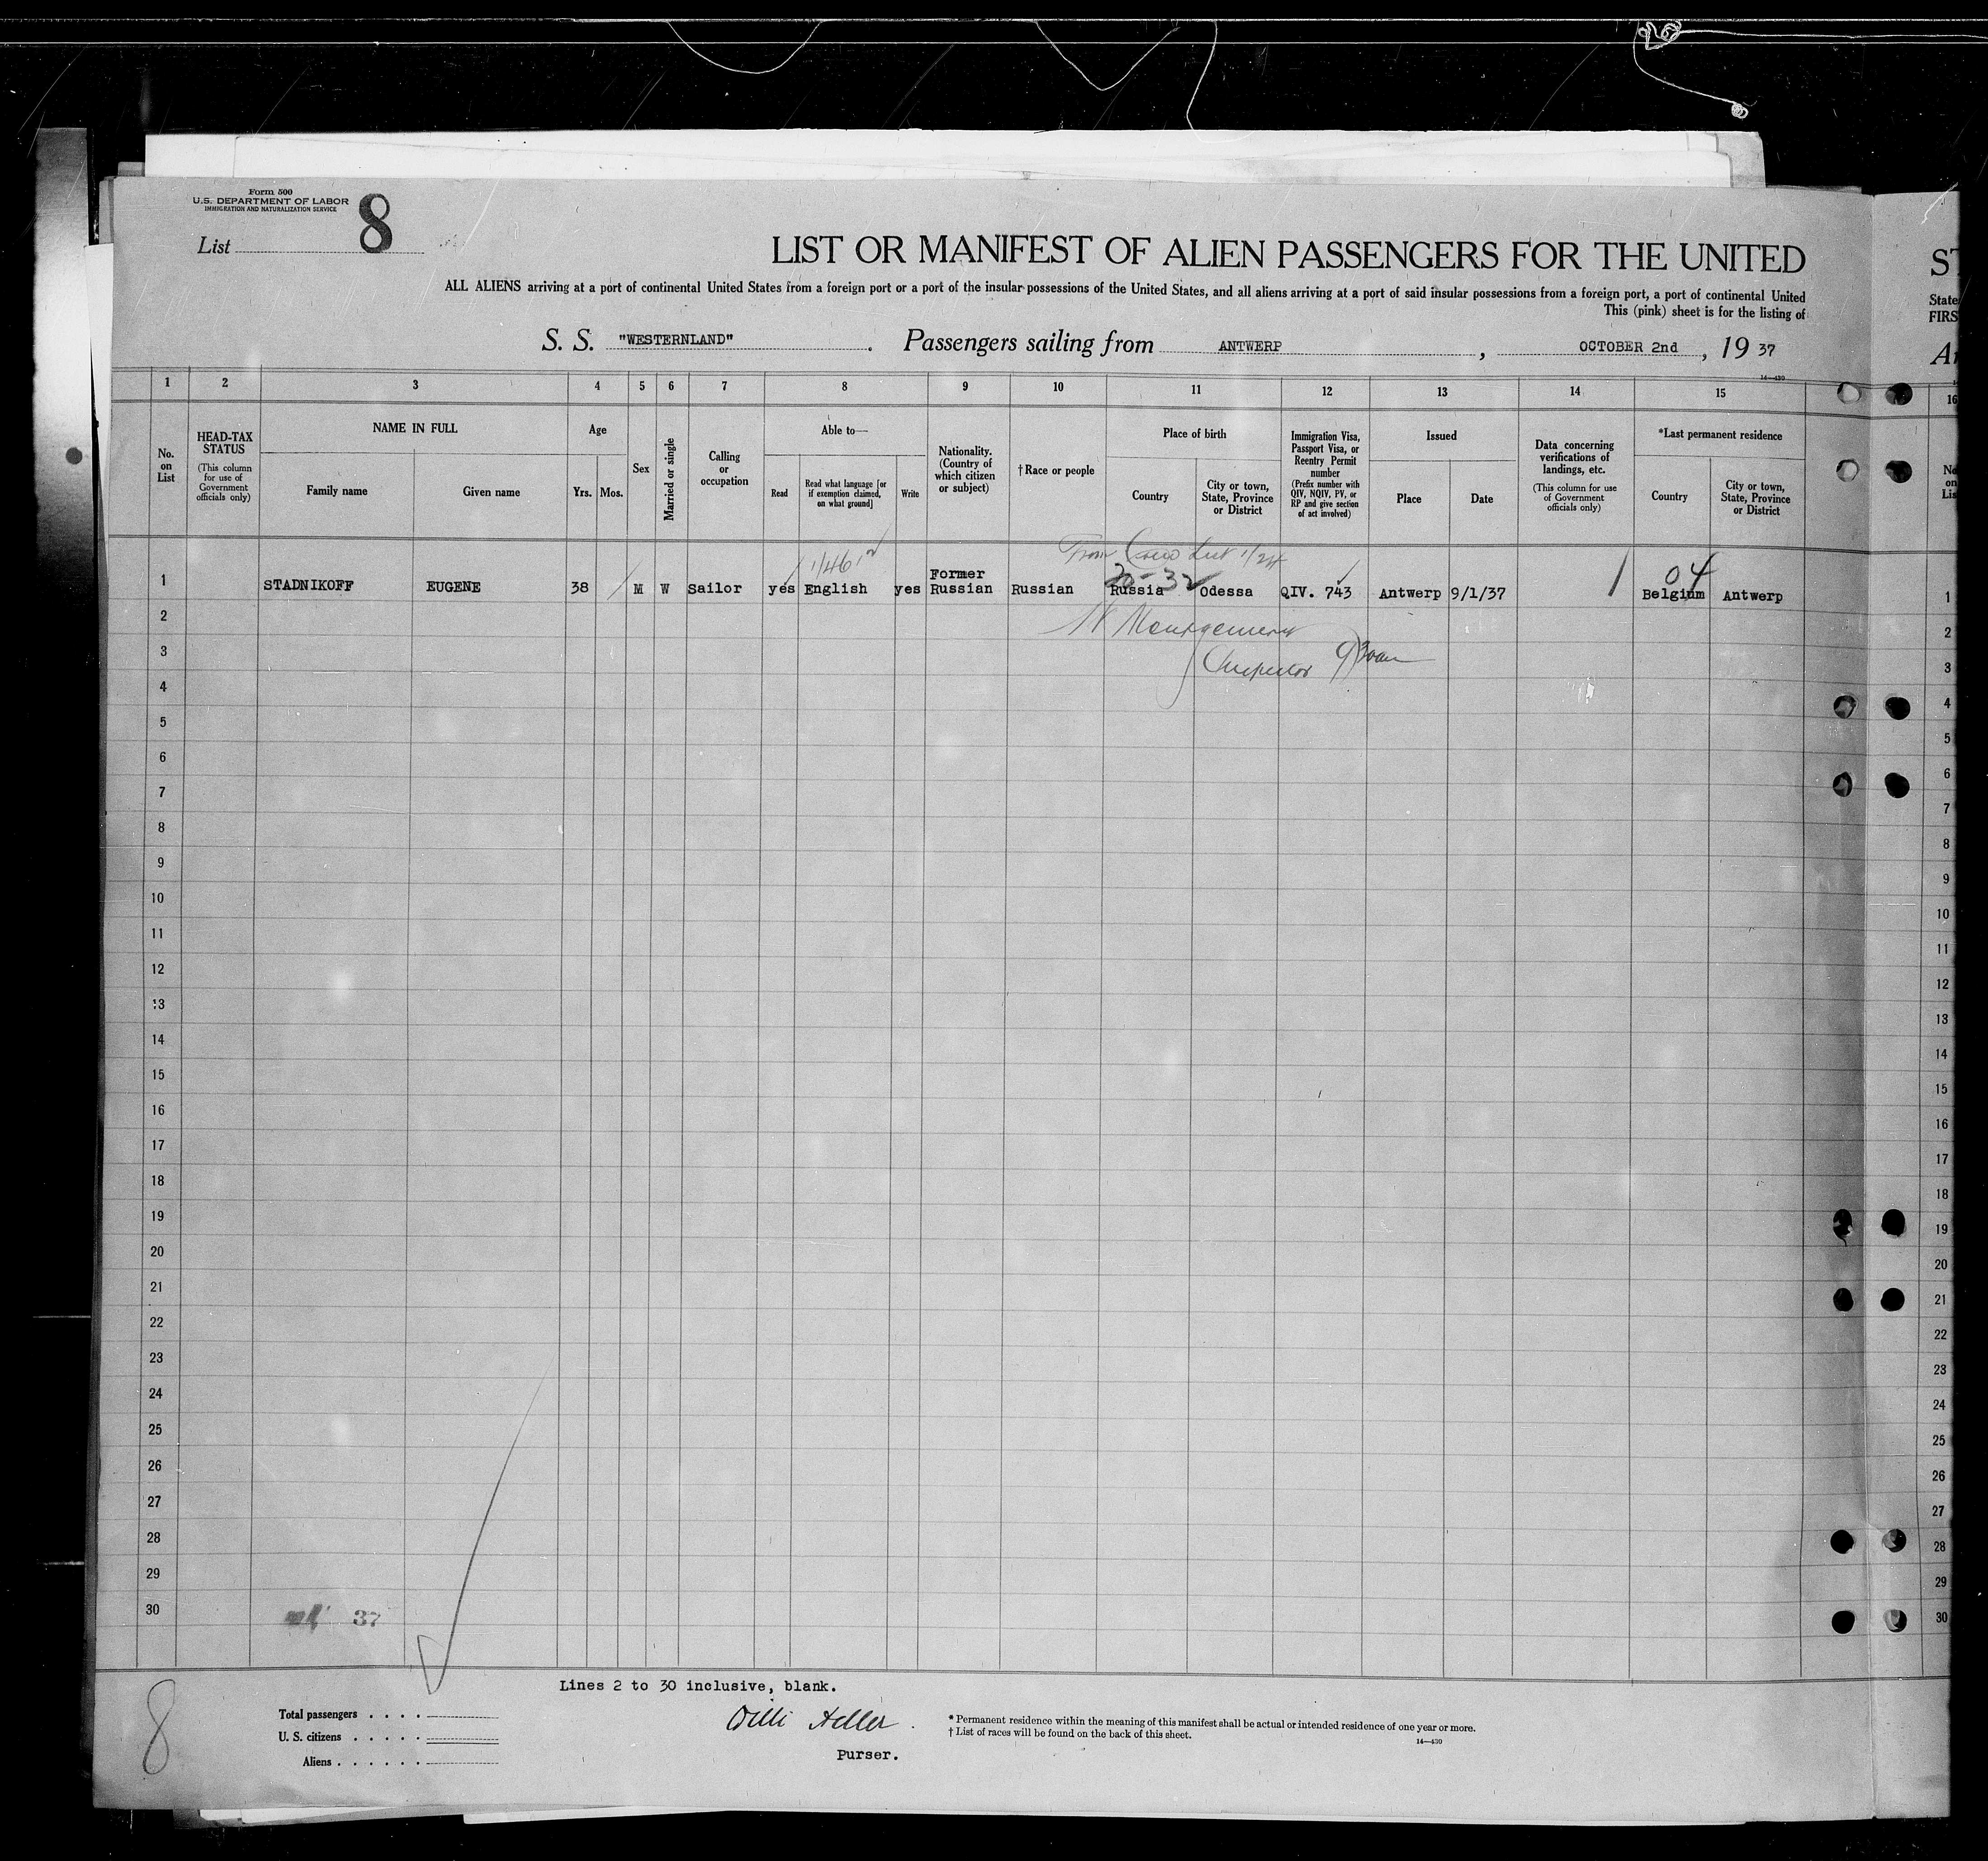 Form 500
U.S. DEPARTMENT OF LABOR
IMMIGRATION AND NATURALIZATION SERVICE
List 8
LIST OR MANIFEST OF ALIEN PASSENGERS FOR THE UNITED
ST
ALL ALIENS arriving at a port of continental United States from a foreign port or a port of the insular possessions of the United States, and all aliens arriving at a port of said insular possessions from a foreign port, a port of continental United
State
This (pink) sheet is for the listing of
FIRS
S. S. "WESTERNLAND" . Passengers sailing from ANTWERP , OCTOBER 2nd , 19 37
14—430
1 2 3 4 5 6 7 8 9 10 11 12 13 14 15 16
No. on List
HEAD-TAX STATUS
(This column for use of Government officials only)
NAME IN FULL
Family name
Given name
Age
Yrs.
Mos.
Sex
Married or single
Calling or occupation
Able to—
Read
Read what language [or if exemption claimed, on what ground]
Write
Nationality. (Country of which citizen or subject)
†Race or people
Place of birth
Country
City or town, State, Province or District
Immigration Visa, Passport Visa, or Reentry Permit number
(Prefix number with QIV, NQIV, PV, or RP and give section of act involved)
Issued
Place
Date
Data concerning verifications of landings, etc.
(This column for use of Government officials only)
*Last permanent residence
Country
City or town, State, Province or District
From Crew List
1 STADNIKOFF EUGENE 38 M W Sailor yes English yes Former Russian Russian Russia Odessa QIV. 743 Antwerp 9/1/37 Belgium Antwerp 1
04
2 2
Inspector
3 3
4 4
5 5
6 6
7 7
8 8
9 9
10 10
11 11
12 12
13 13
14 14
15 15
16 16
17 17
18 18
19 19
20 20
21 21
22 22
23 23
24 24
25 25
26 26
27 27
28 28
29 29
30 30
37
Lines 2 to 30 inclusive, blank.
8
Total passengers
U. S. citizens
Aliens
Heller
Purser.
* Permanent residence within the meaning of this manifest shall be actual or intended residence of one year or more.
† List of races will be found on the back of this sheet.
14—430